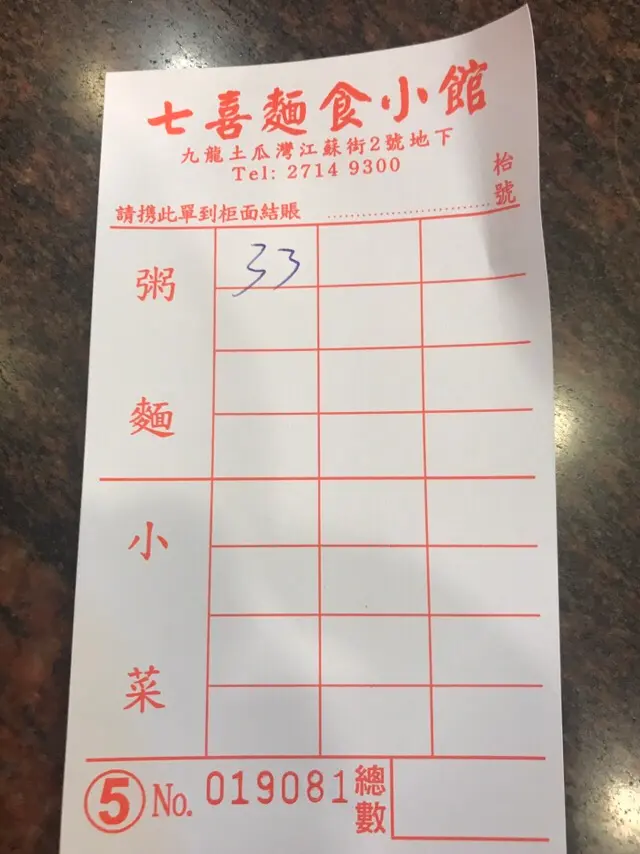 七喜麵食小館
九龍土瓜灣江蘇街2號地下
Tel: 2714 9300
枱號
請携此單到柜面結賬
粥麵
33
小菜
⑤ No. 019081 總數